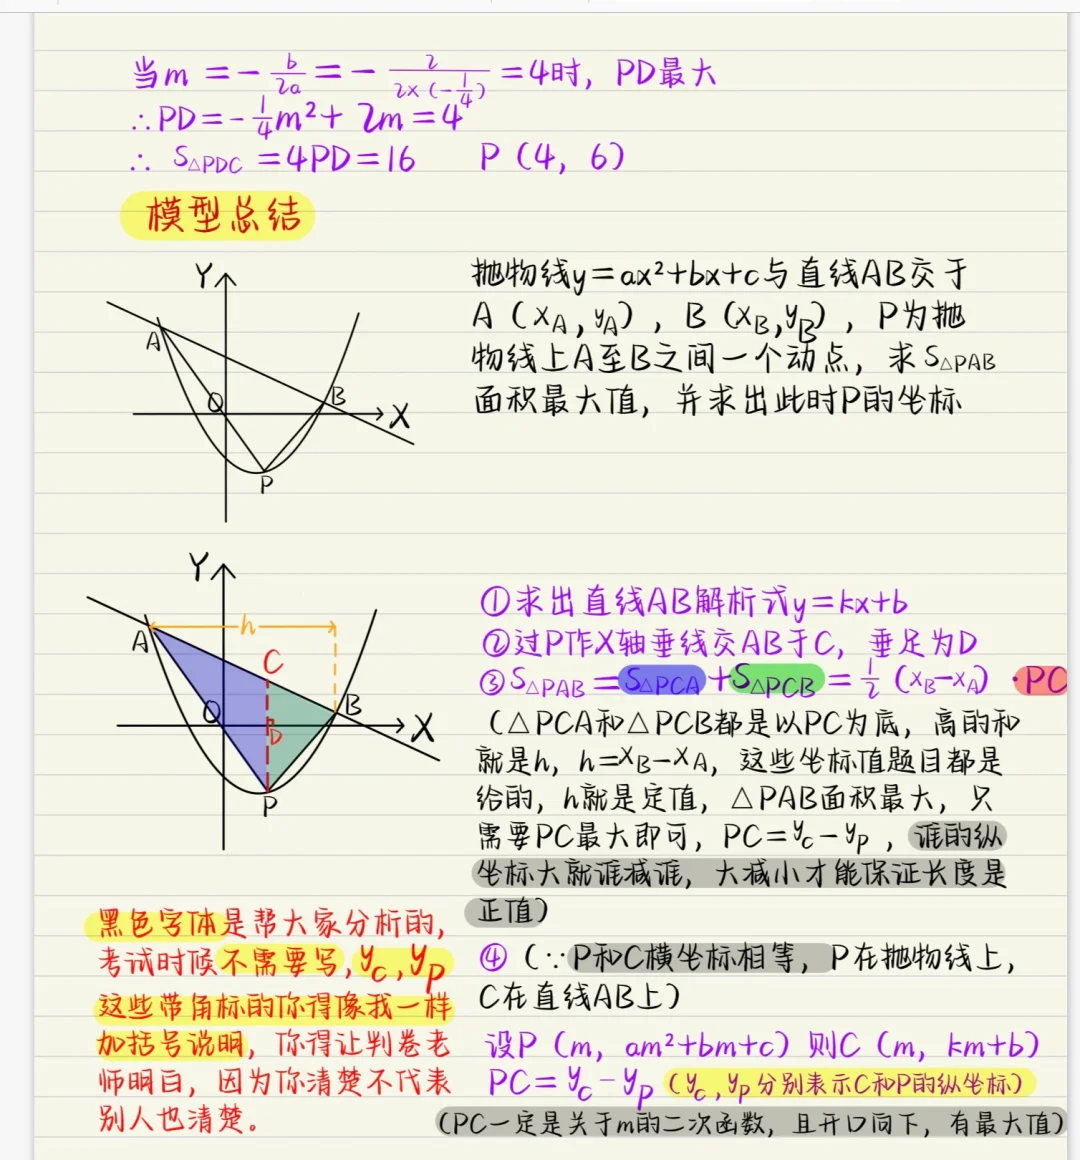 当m = -b/2a = -2/(2×(-1/4)) = 4时，PD最大
∴PD = -1/4m²+ 2m = 4
∴ S△PDC = 4PD = 16 P（4，6）
模型总结
Y
A
O
B
X
P
抛物线y=ax²+bx+c与直线AB交于
A（xA,yA），B（xB,yB），P为抛
物线上A至B之间一个动点，求S△PAB
面积最大值，并求出此时P的坐标
Y
h
A
C
O
B
D
X
P
①求出直线AB解析式y=kx+b
②过P作X轴垂线交AB于C，垂足为D
③S△PAB=S△PCA+S△PCB=1/2（xB-xA）·PC
（△PCA和△PCB都是以PC为底，高的和
就是h，h=xB-xA，这些坐标值题目都是
给的，h就是定值，△PAB面积最大，只
需要PC最大即可，PC=yc-yp，谁的纵
坐标大就谁减谁，大减小才能保证长度是
正值）
④（∵P和C横坐标相等，P在抛物线上，
C在直线AB上）
设P（m，am²+bm+c）则C（m，km+b）
PC=yc-yp（yc,yp分别表示C和P的纵坐标）
（PC一定是关于m的二次函数，且开口向下，有最大值）
黑色字体是帮大家分析的，
考试时候不需要写，yc,yp
这些带角标的你得像我一样
加括号说明，你得让判卷老
师明白，因为你清楚不代表
别人也清楚。